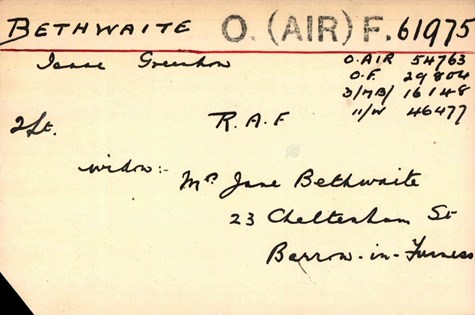 BETHWAITE O. (AIR) F. 61975
Isaac Greenhow O.AIR 54763
O.F. 29804
3/MB/ 16148
2Lt. R.A.F 11/W 46477
widow:-
Mrs Jane Bethwaite
23 Cheltenham St
Barrow-in-Furness